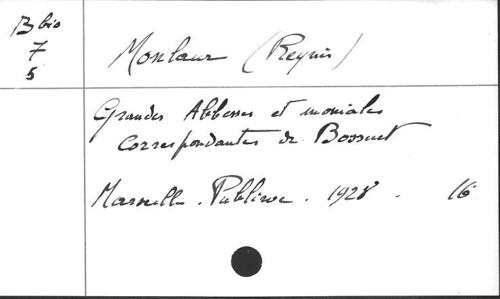 B bio
7
5
Monlaur (Reynès)
Grandes Abbesses et moniales
correspondantes de Bossuet
Marseille . Publiroc . 1928 . 16